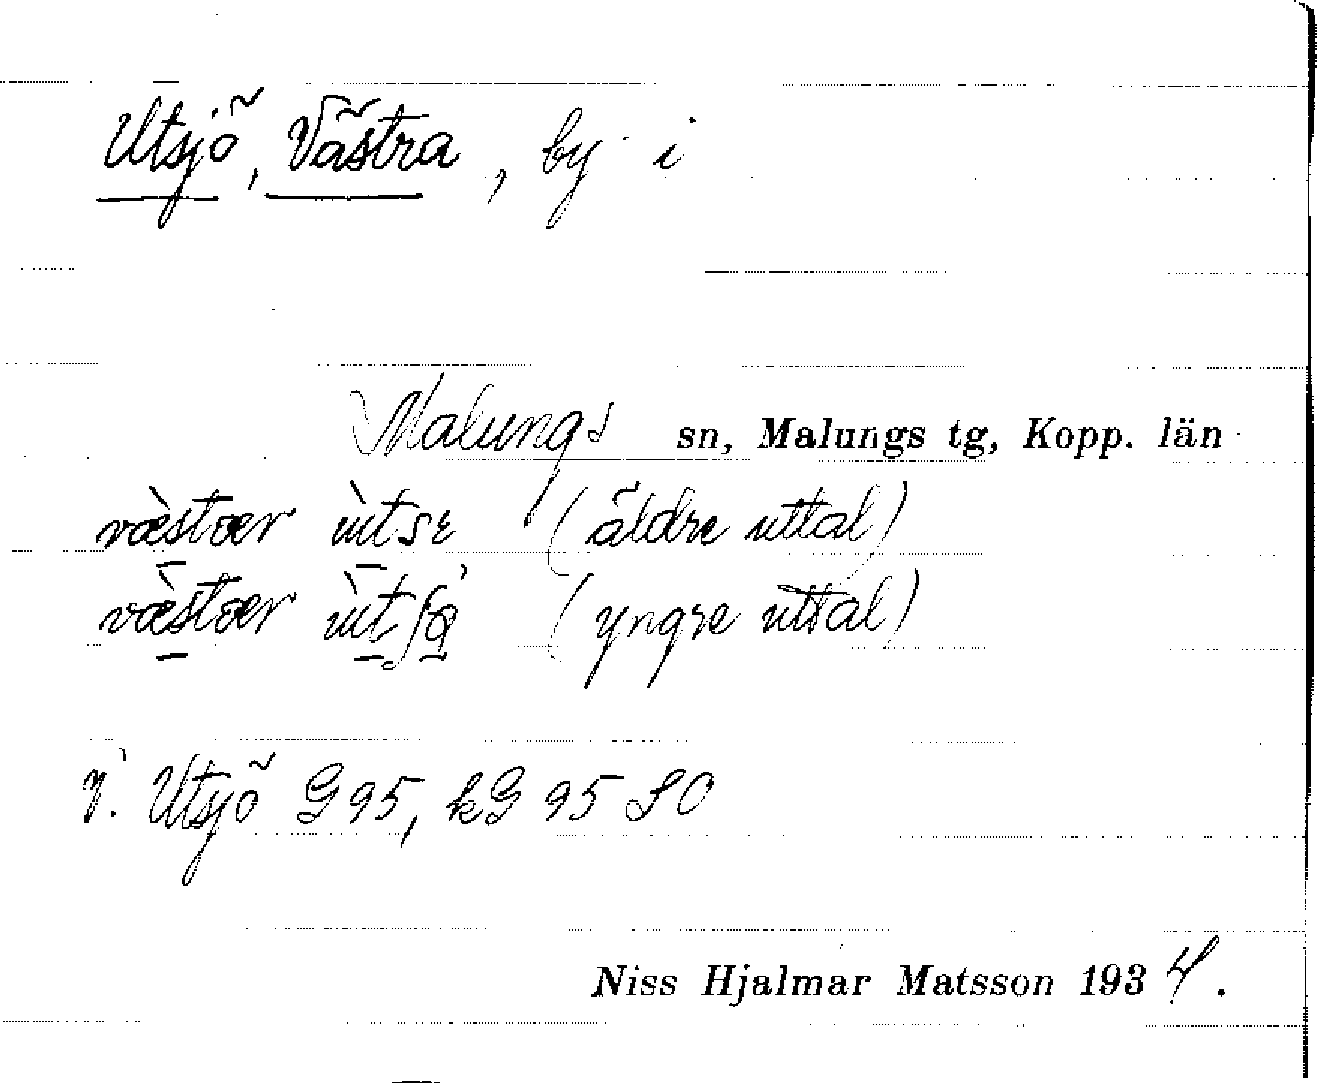 Utsjö, Västra, by i
Malungs sn, Malungs tg, Kopp. län
væ̀stær ùtsɛ (äldre uttal)
væ̀stær ùtʃö̀ (yngre uttal)
V. Utsjö G 95, kG 95 SO
Niss Hjalmar Matsson 1934.